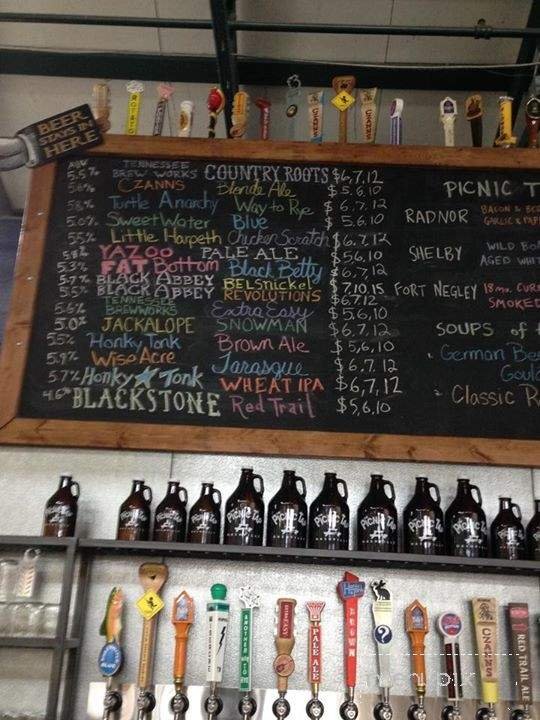 BEER
STAYS IN
HERE
ABV
5.5% TENNESSEE BREW WORKS COUNTRY ROOTS $6,7,12
5.6% CZANNS Blonde Ale $5,6,10
5.8% Turtle Anarchy Way to Rye $6,7,12
5.0% SweetWater Blue $5,6,10
5.5% Little Harpeth Chicken Scratch $6,7,12
5.8% YAZOO PALE ALE $5,6,10
5.3% FAT Bottom Black Betty $6,7,12
5.7% BLACK ABBEY BELSNICKEL $7,10,15
5.5% BLACK ABBEY REVOLUTIONS $6,7,12
5.6% TENNESSEE BREWWORKS Extra Easy $5,6,10
5.0% JACKALOPE SNOWMAN $6,7,12
5.5% Honky Tonk Brown Ale $5,6,10
5.9% Wise Acre Tarasque $6,7,12
5.7% Honky Tonk WHEAT IPA $6,7,12
4.6% BLACKSTONE Red Trail $5,6,10
PICNIC T
RADNOR BACON &
GARLIC &
SHELBY WILD
AGED WHIT
FORT NEGLEY 18 mo. CURE
SMOKED
SOUPS of t
German Bee
Goul
Classic R
PICNIC TAP
PICNIC TAP
PICNIC TAP
PICNIC TAP
PICNIC TAP
PICNIC TAP
PICNIC TAP
PICNIC TAP
BLUE
ANOTHER WAY TO RYE
PALE ALE
BROWN
CZANNS
RED TRAIL ALE